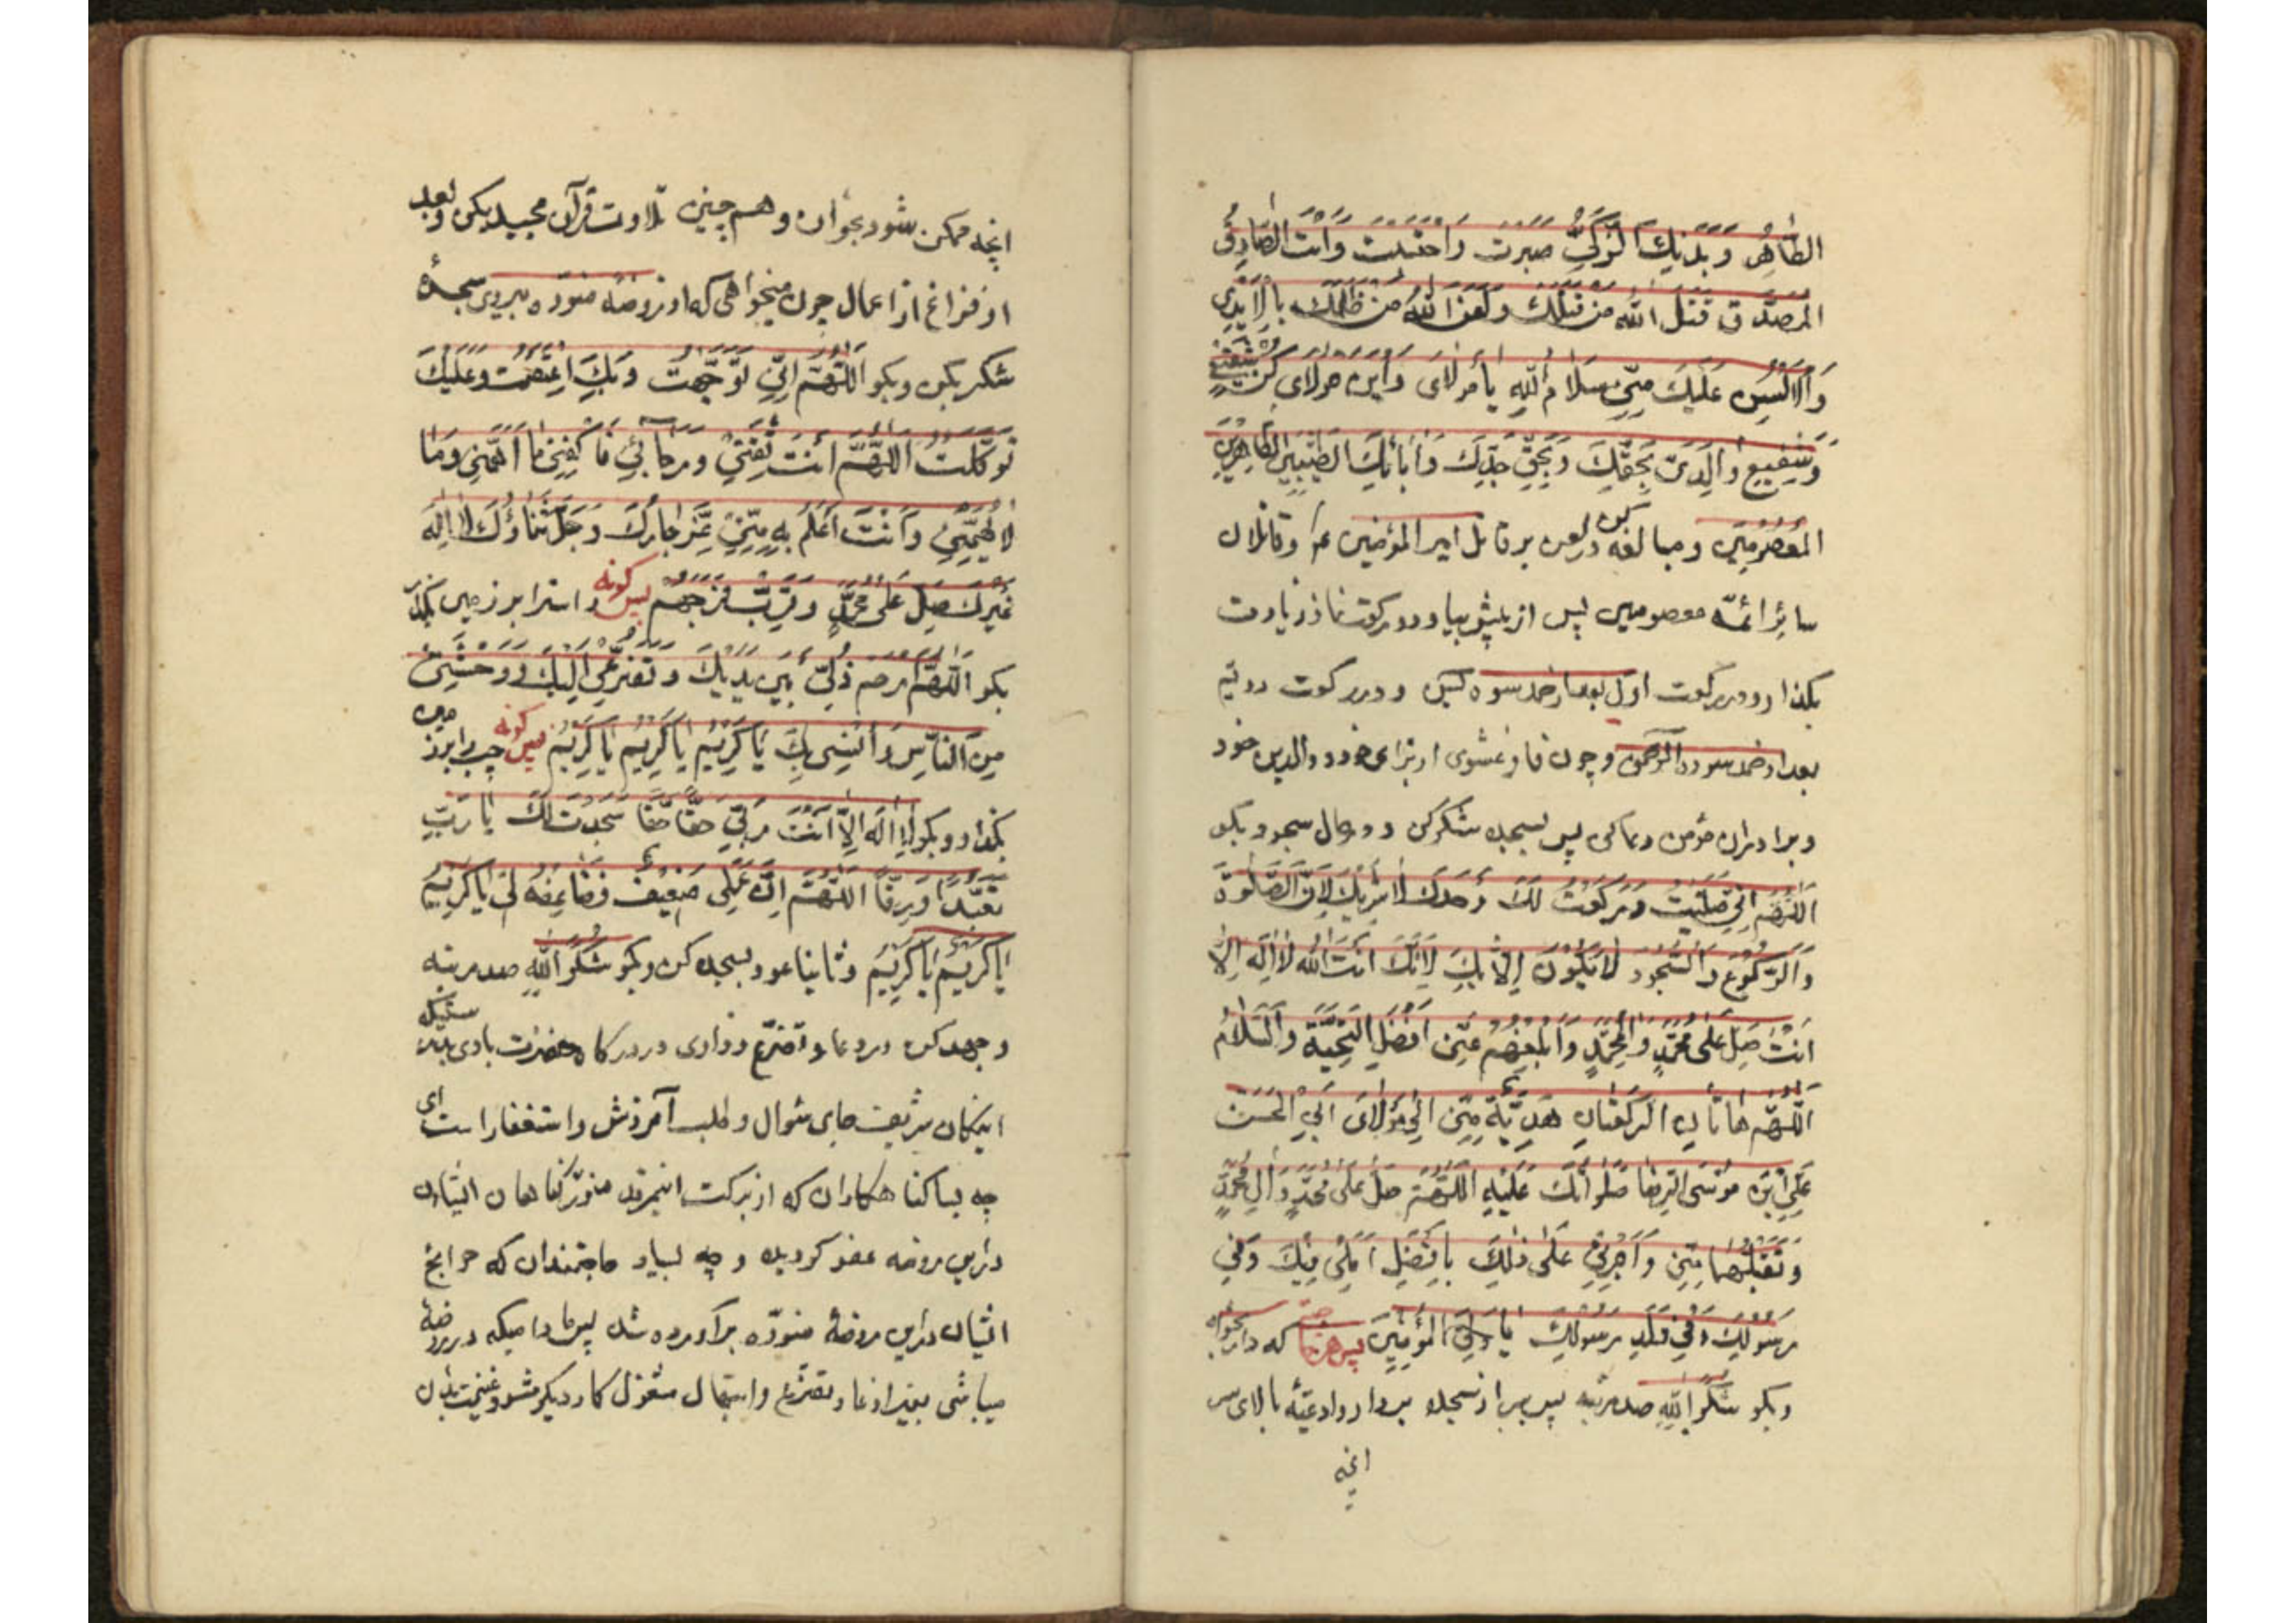 الطَّاهِرِ وَبَدَنِكَ الزَّكِيِّ صَبَرْتَ وَاحْتَسَبْتَ وَأَنْتَ الصَّادِقُ
المُصَدَّق قَتَلَ اللّٰه مَن قَتَلَكَ وَلَعَنَ اللّٰهُ مَن ظَلَمَكَ بِالْاَيْدِي
وَالْاَلْسُنِ عَلَيْكَ مِنّي سَلَامُ اللّٰهِ يَا مَوْلَایَ وَابْنَ مَوْلَای كُنْ شَفِيعي
وَشَفِيعِ وَالِدَيَّ بِحَقِّكَ وَبِحَقِّ جَدِّكَ وَآبَائِكَ الطَّيِّبِينَ الطَّاهِرِينَ
المَعْصُومِينَ ومبالغه كن در لعن بر قاتل امير المؤمنين ع م وقاتلان
سائر ائمّه معصومين پس از پيش بيا ودو ركوت نماز زيارت
بكذار ودر ركوت اول بعد از حمد سوره يس ودر ركوت دويّم
بعد از حمد سوره الرّحمن وچون فارغ شوى از براى خود ووالدين خود
وبرادران مؤمن دعا كن پس بسجده شكر كن ودر حال سجود بكو
اللّٰهُمَّ اِنّي صَلَّيْتُ وَرَكَعْتُ لَكَ وَحْدَكَ لَا شَرِيكَ لَكَ لِاَنَّ الصَّلٰوةَ
وَالرُّكُوعَ وَالسُّجُودَ لَا يَكُونُ اِلَّا لَكَ لِاَنَّكَ اَنْتَ اللّٰه لَا اِلٰهَ اِلَّا
اَنْتَ صَلِّ عَلٰى مُحَمَّدٍ وَآلِ مُحَمَّدٍ وَاَبْلِغْهُمْ عَنّي اَفْضَلَ التَّحِيَّةِ وَالسَّلَامِ
اَللّٰهُمَّ هَاتَانِ الرَّكْعَتَانِ هَدِيَّةٌ مِنّي اِلٰى مَوْلَایَ اَبِي الْحَسَنِ
عَلِيِّ ابْنِ مُوسَى الرِّضَا صَلَوَاتُكَ عَلَيْهِ اللّٰهُمَّ صَلِّ عَلٰى مُحَمَّدٍ وَآلِ مُحَمَّدٍ
وَتَقَبَّلْهُمَا مِنّي وَاجْرِني عَلٰى ذٰلِكَ بِاَفْضَلِ اَمَلي فِيكَ وَفِي
رَسُولِكَ وَفِي وَلَدِ رَسُولِكَ يَا وَلِيَّ الْمُؤْمِنِينَ پس هر حاجتى كه دارى بخواه
وبكو شُكْراً لِلّٰهِ صد مرتبه پس سر از سجده بردار وادعيّه بالاى سر
انچه
انچه ممكن شود بخوان وهم چنين تلاوت قرآن مجيد بكن وبعد
از فراغ از اعمال چون ميخواهى كه از روضه منوّره بيرون سجدهٔ
شكر بكن وبكو اَللّٰهُمَّ اِنّي تَوَجَّهْتُ وَبِكَ اعْتَصَمْتُ وَعَلَيْكَ
تَوَكَّلْتُ اَللّٰهُمَّ اَنْتَ ثِقَتي وَرَجَائي فَاكْفِني مَا اَهَمَّني وَمَا
لَا يُهِمُّني وَاَنْتَ اَعْلَمُ بِهِ مِنّي عَزَّ جَارُكَ وَجَلَّ ثَنَاؤُكَ لَا اِلٰهَ
غَيْرُكَ صَلِّ عَلٰى مُحَمَّدٍ وَقَرِّبْ فَرَجَهُمْ پس كونه راسترا بر زمين بكذار
بكو اَللّٰهُمَّ ارْحَمْ ذُلّي بَيْنَ يَدَيْكَ وَتَضَرُّعي اِلَيْكَ وَوَحْشَتي
مِنَ النَّاسِ وَاُنْسي بِكَ يَا كَرِيمُ يَا كَرِيمُ يَا كَرِيمُ پس كونه چپ را بر زمين
بكذار وبكو لَا اِلٰهَ اِلَّا اَنْتَ رَبّي حَقّاً حَقّا سَجَدْتُ لَكَ يَا رَبِّ
تَعَبُّداً وَرِقّاً اَللّٰهُمَّ اِنَّ عَمَلي ضَعِيفٌ فَضَاعِفْهُ لي يَا كَرِيمُ
يَا كَرِيمُ يَا كَرِيمُ وثانيا عود بسجده كن وبكو شُكْراً لِلّٰهِ صد مرتبه
وجهد كن در دعا وتضرّع وزارى در دركاه حضرت بارى بدرستيكه
اينمكان شريف جاى سُوال وطلب آمرزش واستغفار است اى
چه بسا كناهكاران كه از بركت اينمرقد منوّر كناهان ايشان
در اين روضه عفو كرديده وچه بسيار حاجتمندان كه حوائج
ايشان در اين روضهٔ منوّره برآورده شد پس ماداميكه در روضهٔ
ميباشى بغير از دعا وتضرّع وابتهال مشغول كار ديكر مشو وغنيمت بدان